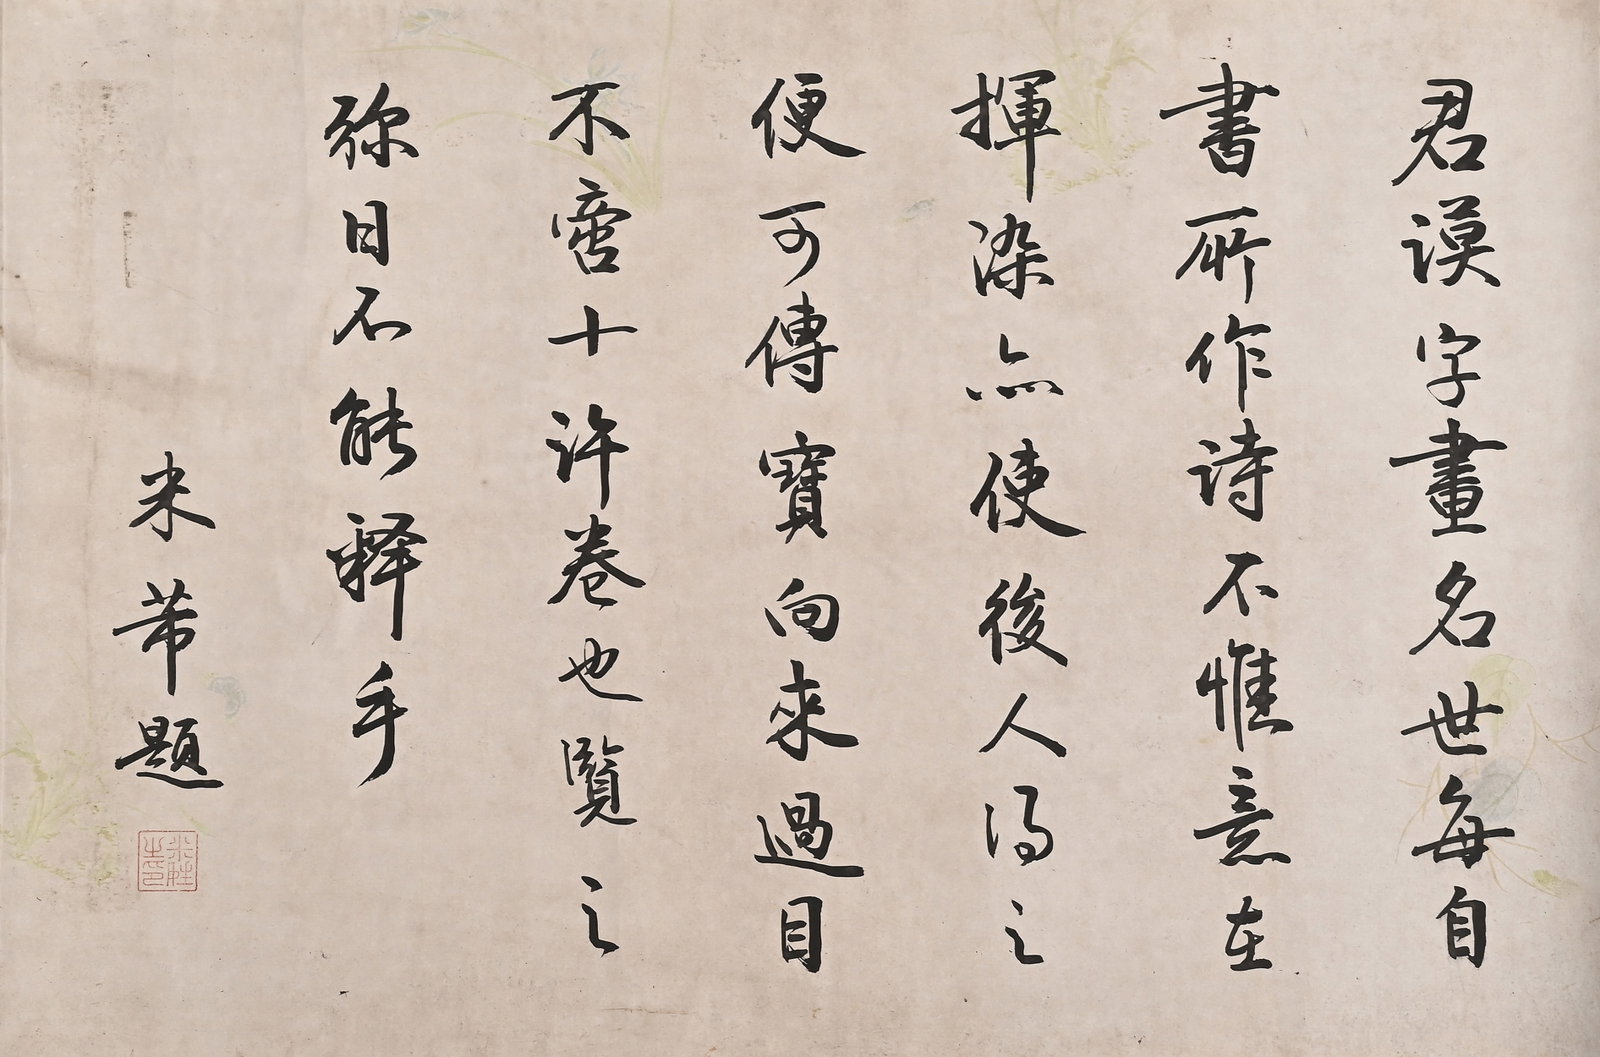 君謨字畫名世每自
書所作詩不惟意在
揮染亦使後人得之
便可傳寶向來過目
不啻十許卷也覽之
弥日不能释手
米芾題
米黻之印